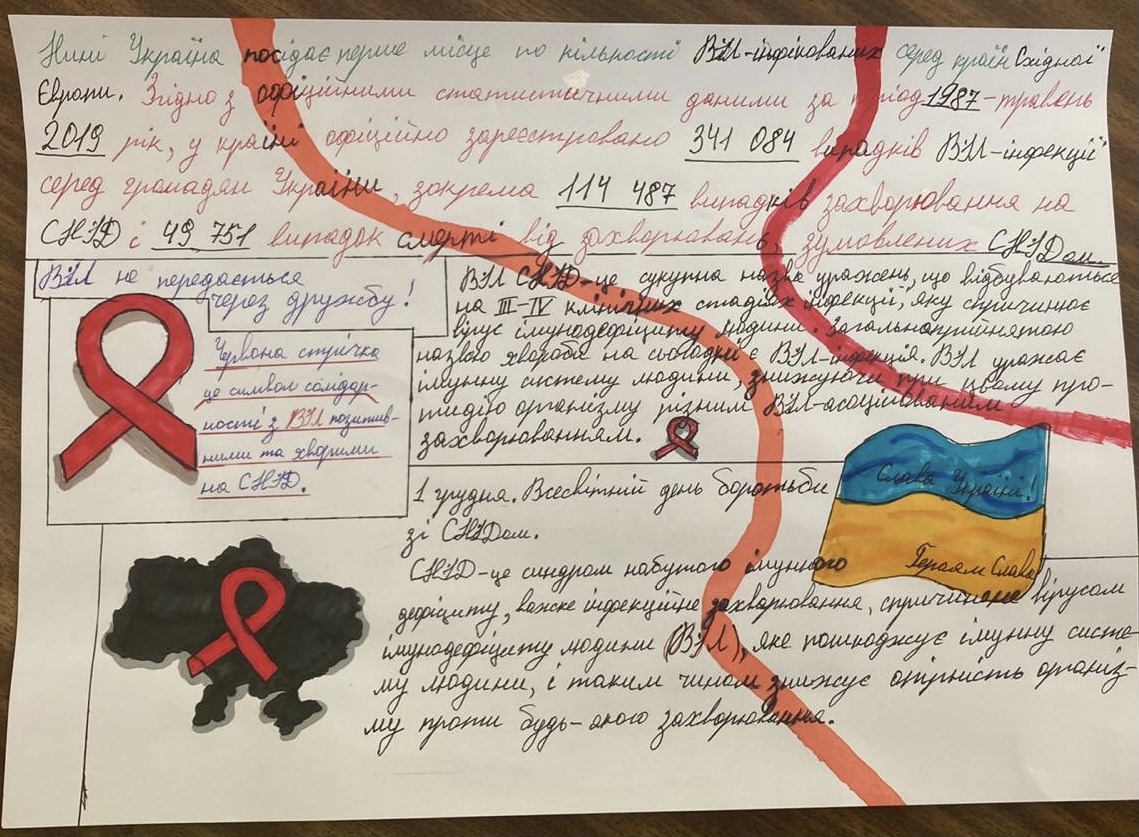 Нині Україна посідає перше місце по кількості ВІЛ-інфікованих серед країн Східної
Європи. Згідно з офіційними статистичними даними за період 1987-травень
2019 рік, у країні офіційно зареєстровано 341 084 випадків ВІЛ-інфекції
серед громадян України, зокрема 114 487 випадків захворювання на
СНІД і 49 751 випадок смерті від захворювань, зумовлених СНІДом.
ВІЛ не передається
через дружбу!
Червона стрічка
це символ солідар-
ності з ВІЛ позитив-
ними та хворими
на СНІД.
ВІЛ СНІД-це, сукупна назва уражень, що відбуваються
на III-IV клінічних стадіях інфекції, яку спричинює
вірус імунодефіциту людини. Загальноприйнятою
назвою хвороби на сьогодні є ВІЛ-інфекція. ВІЛ уражає
імунну систему людини, знижуючи при цьому про-
тидію організму різним ВІЛ-асоційованим
захворюванням.
Слава Україні!
Героям Слава
1 грудня. Всесвітній день боротьби
зі СНІДом.
СНІД-це синдром набутого імунного
дефіциту, важке інфекційне захворювання, спричинене вірусом
імунодефіциту людини (ВІЛ), яке пошкоджує імунну систе-
му людини, і таким чином знижує опірність організ-
му проти будь-якого захворювання.